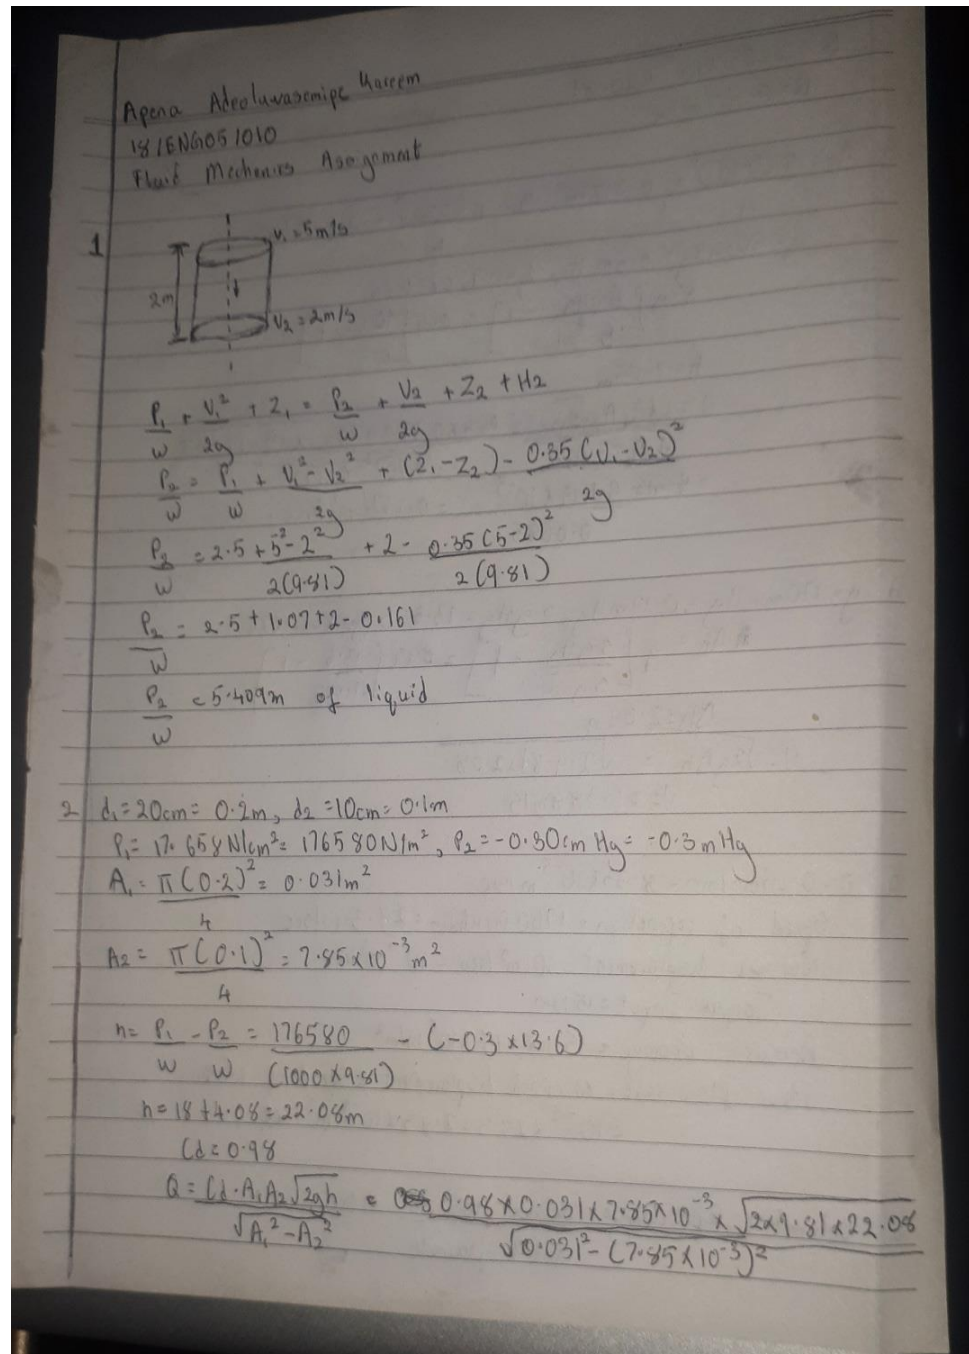 Apena Adeoluwasemipe Kareem
18/ENG05/010
Fluid Mechanics Assignment
1
V₁ = 5m/s
2m
V₂ = 2m/s
P₁/w + V₁²/2g + Z₁ = P₂/w + V₂/2g + Z₂ + H2
P₂/w = P₁/w + V₁² - V₂²/2g + (Z₁ - Z₂) - 0.35(V₁ - V₂)²/2g
P₂/w = 2.5 + 5² - 2²/2(9.81) + 2 - 0.35(5-2)²/2(9.81)
P₂/w = 2.5 + 1.07 + 2 - 0.161
P₂/w = 5.409m of liquid
2 d₁ = 20cm = 0.2m, d₂ = 10cm = 0.1m
P₁ = 17.658N/cm² = 176580N/m², P₂ = -0.30cm Hg = -0.3m Hg
A₁ = π(0.2)²/4 = 0.031m²
A2 = π(0.1)²/4 = 7.85×10⁻³m²
h = P₁/w - P₂/w = 176580/(1000×9.81) - (-0.3×13.6)
h = 18 + 4.08 = 22.08m
Cd = 0.98
Q = Cd·A₁A₂√2gh/√A₁² - A₂² = 0.98×0.031×7.85×10⁻³×√2×9.81×22.08/√0.031² - (7.85×10⁻³)²